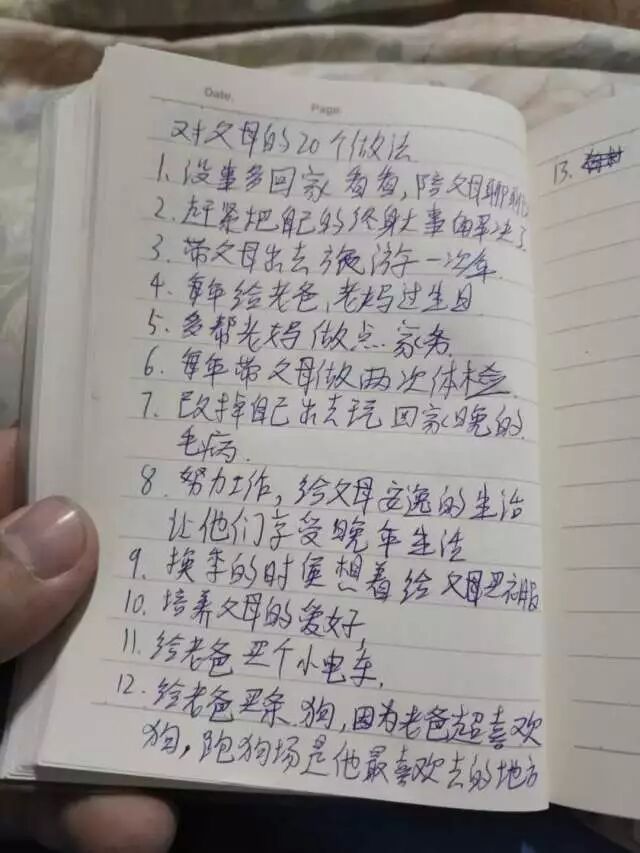 Date.
Page
对父母的20个做法
1. 没事多回家看看,陪父母聊聊
2. 赶紧把自己的终身大事解决了
3. 带父母出去旅游一次年
4. 每年给老爸,老妈过生日
5. 多帮老妈做点家务
6. 每年带父母做两次体检
7. 改掉自己出去玩回家晚的
毛病.
8. 努力工作,给父母安逸的生活
让他们享受晚年生活
9. 换季的时候想着给父母买衣服
10. 培养父母的爱好
11. 给老爸买个小电车.
12. 给老爸买条狗,因为老爸超喜欢
狗,跑狗场是他最喜欢去的地方
13.